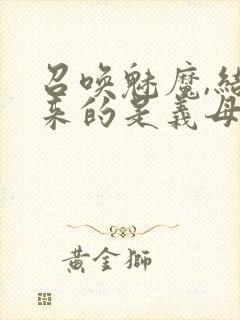 召唤魅魔,结
来的是義母
黄金獅